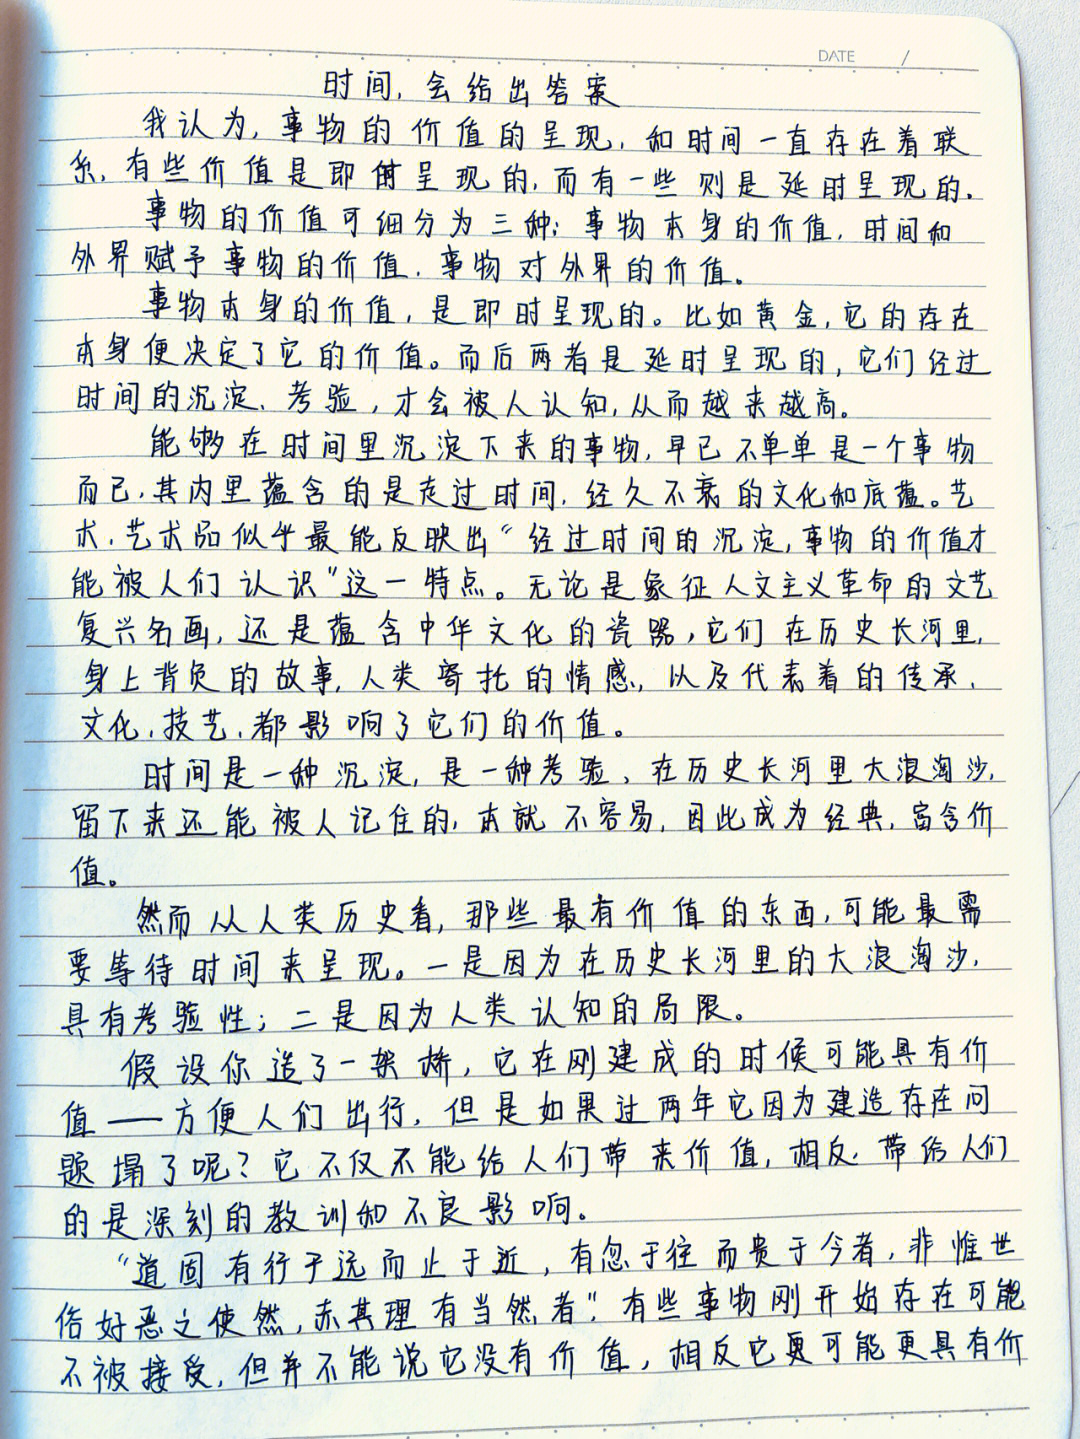 DATE /
时间,会给出答案
我认为,事物的价值的呈现,和时间一直存在着联
系,有些价值是即时呈现的,而有一些则是延时呈现的.
事物的价值可细分为三种:事物本身的价值,时间和
外界赋予事物的价值,事物对外界的价值。
事物本身的价值,是即时呈现的。比如黄金,它的存在
本身便决定了它的价值。而后两者是延时呈现的,它们经过
时间的沉淀、考验,才会被人认知,从而越来越高。
能够在时间里沉淀下来的事物,早已不单单是一个事物
而已,其内里蕴含的是走过时间,经久不衰的文化和底蕴。艺
术,艺术品似乎最能反映出“经过时间的沉淀,事物的价值才
能被人们认识”这一特点。无论是象征人文主义革命的文艺
复兴名画,还是蕴含中华文化的瓷器,它们在历史长河里,
身上背负的故事,人类寄托的情感,以及代表着的传承、
文化、技艺,都影响了它们的价值。
时间是一种沉淀,是一种考验、在历史长河里大浪淘沙,
留下来还能被人记住的,本就不容易,因此成为经典,富含价
值。
然而从人类历史看,那些最有价值的东西,可能最需
要等待时间来呈现。一是因为在历史长河里的大浪淘沙,
具有考验性;二是因为人类认知的局限。
假设你造了一架桥,它在刚建成的时候可能具有价
值——方便人们出行,但是如果过两年它因为建造存在问
题塌了呢?它不仅不能给人们带来价值,相反,带给人们
的是深刻的教训和不良影响。
“道固有行于远而止于近,有忽于往而贵于今者,非惟世
俗好恶之使然,亦其理有当然者”.有些事物刚开始存在可能
不被接受,但并不能说它没有价值,相反它更可能更具有价